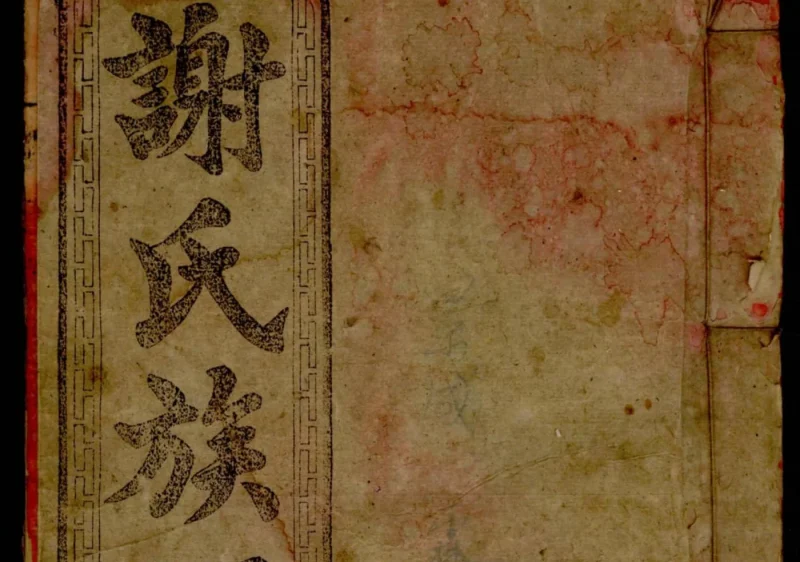 謝氏族